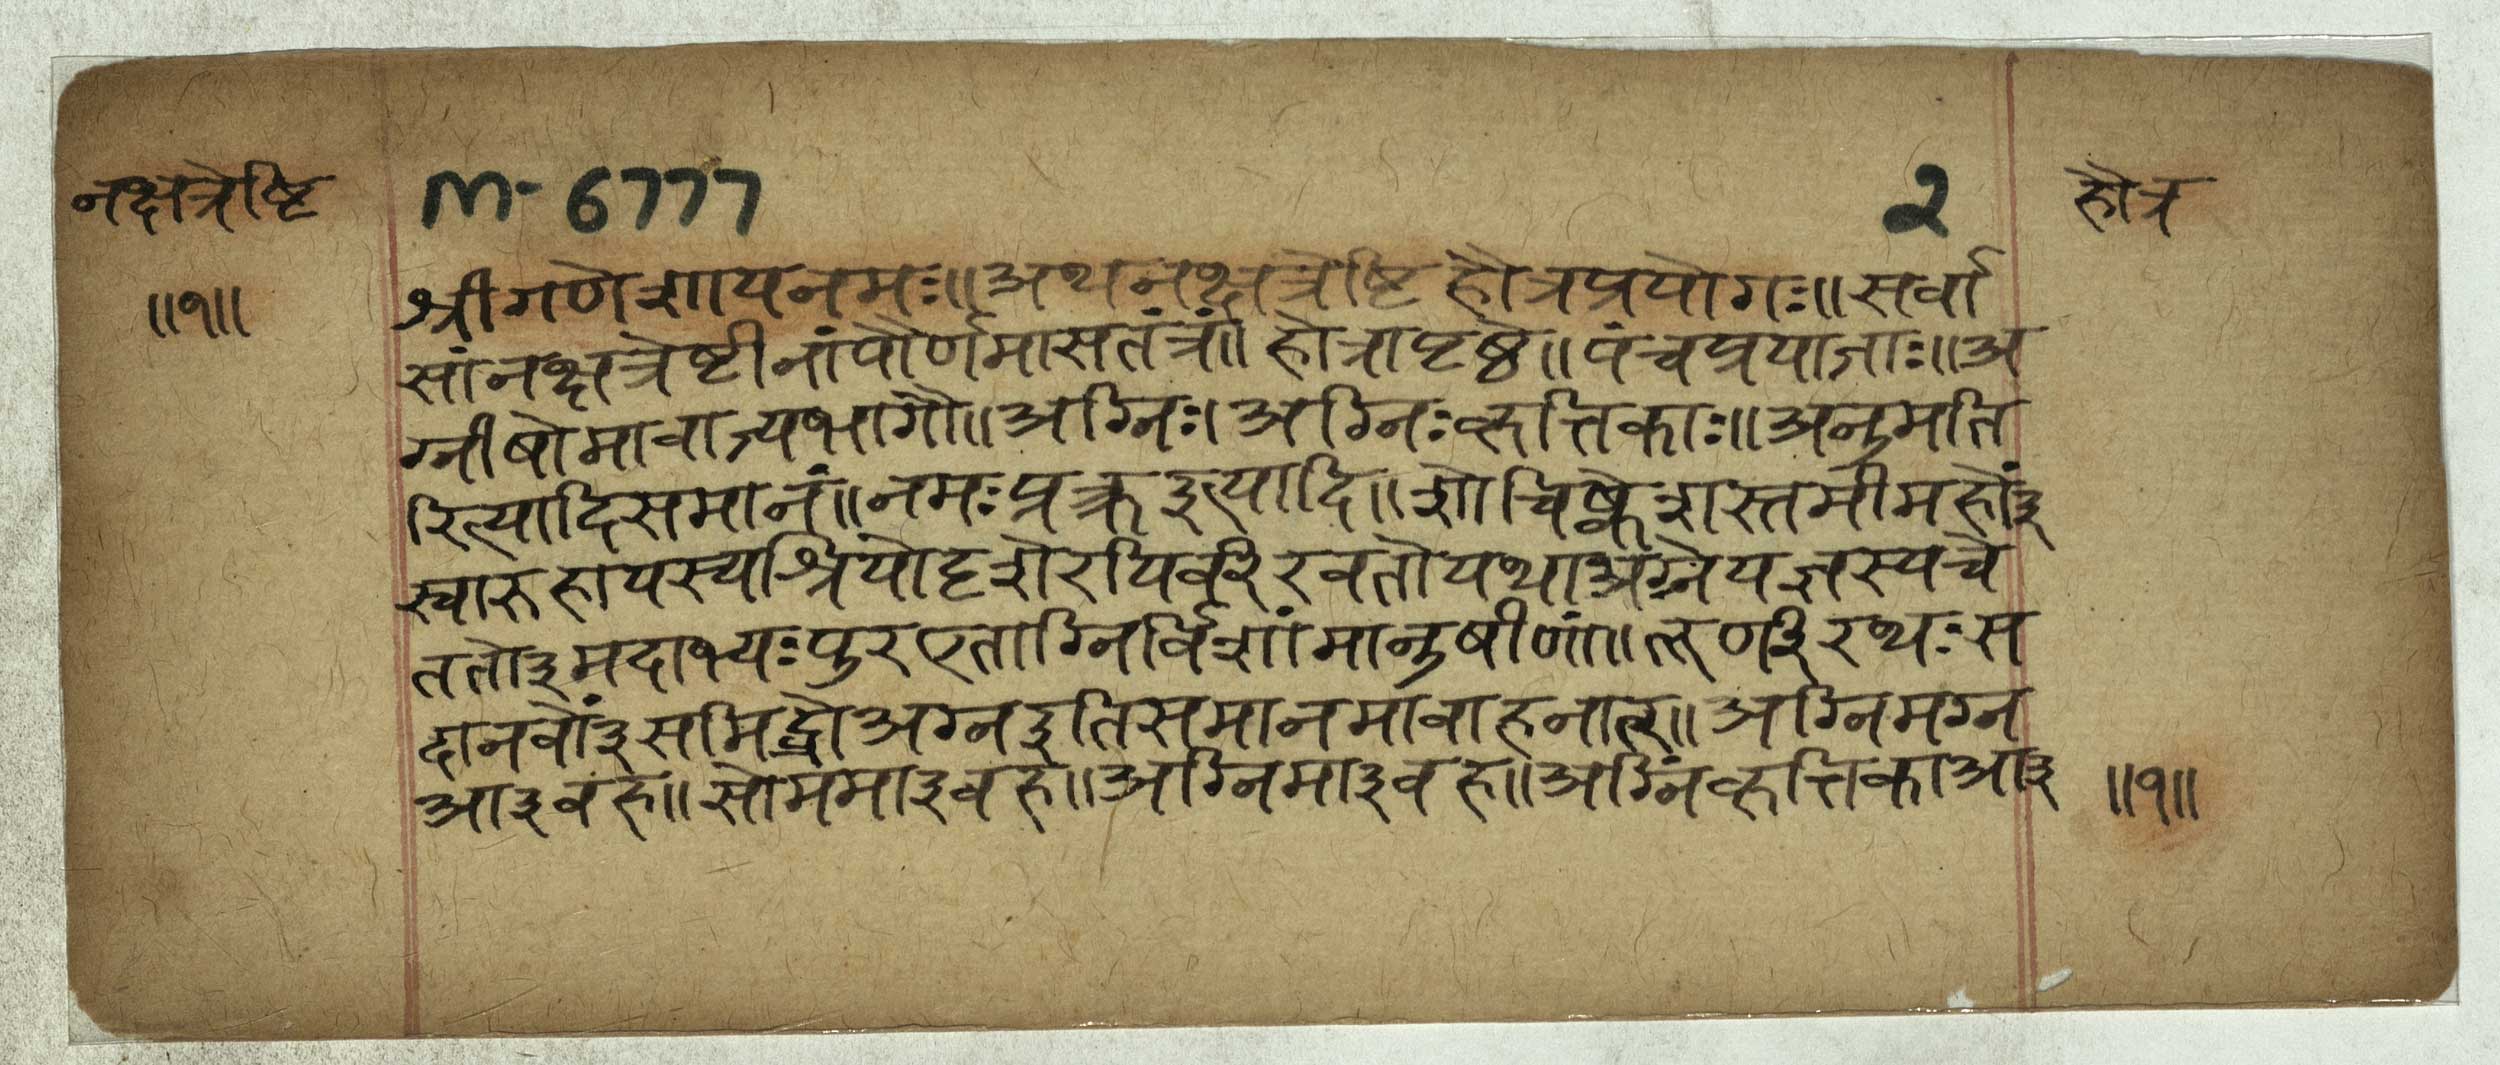 नक्षत्रेष्टि
M-6777
2
हौत्र
॥१॥
श्रीगणेशायनमः॥अथनक्षत्रेष्टिहौत्रप्रयोगः॥सर्वा
सांनक्षत्रेष्टीनांपौर्णमासतंत्रं॥होत्रापृष्टे॥पंचप्रयाजाः॥अ
ग्नीषोमावाज्यभागौ॥अग्निः।अग्निःकृत्तिकाः॥अनुमति
रित्यादिसमानं॥नमःप्रवक्त्रइत्यादि॥शोचिष्केशस्तमीमहों३
स्वारुहायस्यश्रियोदृशेरयिर्वी३रवतोयथाअग्रेयज्ञस्यचे
ततो३मदाभ्यःपुरएताग्निर्विशांमानुषीणां॥तूर्णी३रथःस
दानवों३समिद्धोअग्नइतिसमानमावाहनात्॥अग्निमग्न
आ३वह॥सोममा३वह॥अग्निमा३वह॥अग्निंकृत्तिकाआ३
॥१॥